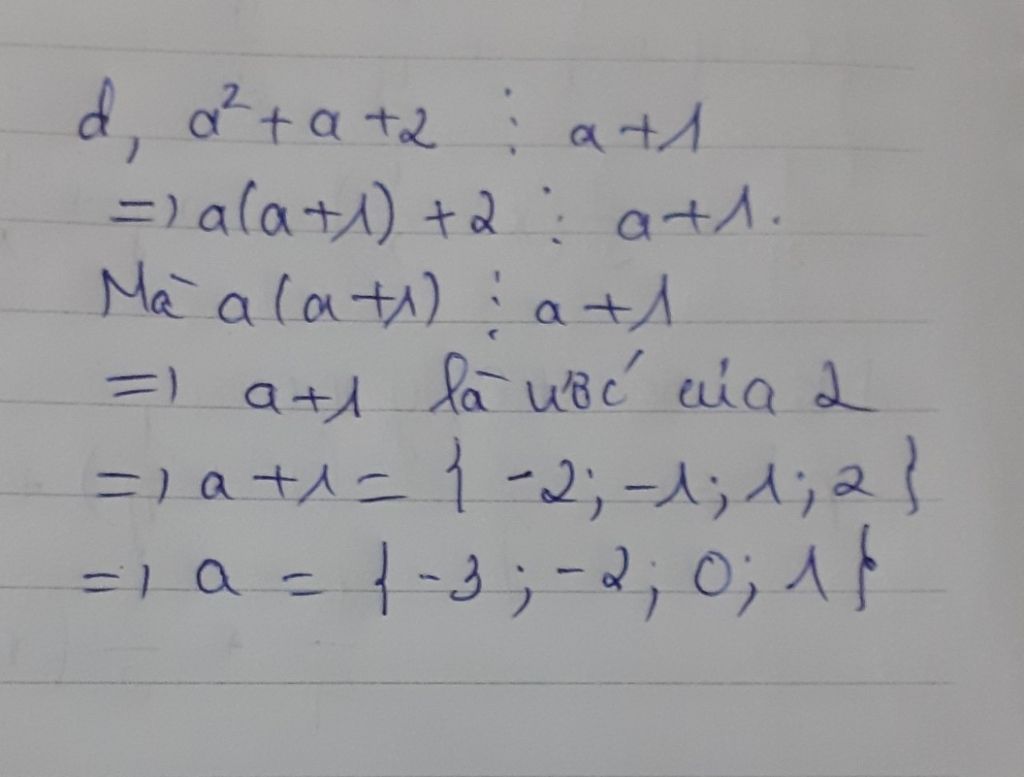 d, a² + a + 2 ⋮ a + 1
=> a(a+1) + 2 ⋮ a+1.
Mà a(a+1) ⋮ a+1
=> a+1 là ước của 2
=> a+1 = { -2; -1; 1; 2 }
=> a = { -3; -2; 0; 1 }